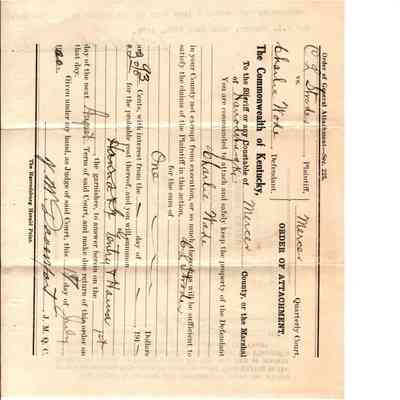 Order of General Attachment—Sec. 225.
C L Rhodes Plaintiff, Mercer Quarterly Court,
vs. ORDER OF ATTACHMENT.
Charlie Wade Defendant.
The Commonwealth of Kentucky
To the Sheriff or any Constable of Mercer County, or the Marshal
of Harrodsburg
You are commanded to attach and safely keep the property of the Defendant
Charlie Wade
in your County not exempt from execution, or so much thereof as will be sufficient to
satisfy the claims of the Plaintiff in this action,
for the sum of
One Dollars
and 93 Cents, with interest from the day of 191
for the probable cost thereof, and you will summon
the garnishee, to answer herein on the 1st
day of the next August Term of said Court, and make due return of this order on
that day.
Given under my hand, as Judge of said Court, this day of July
J. M. Q. C.
The Harrodsburg Herald Print.